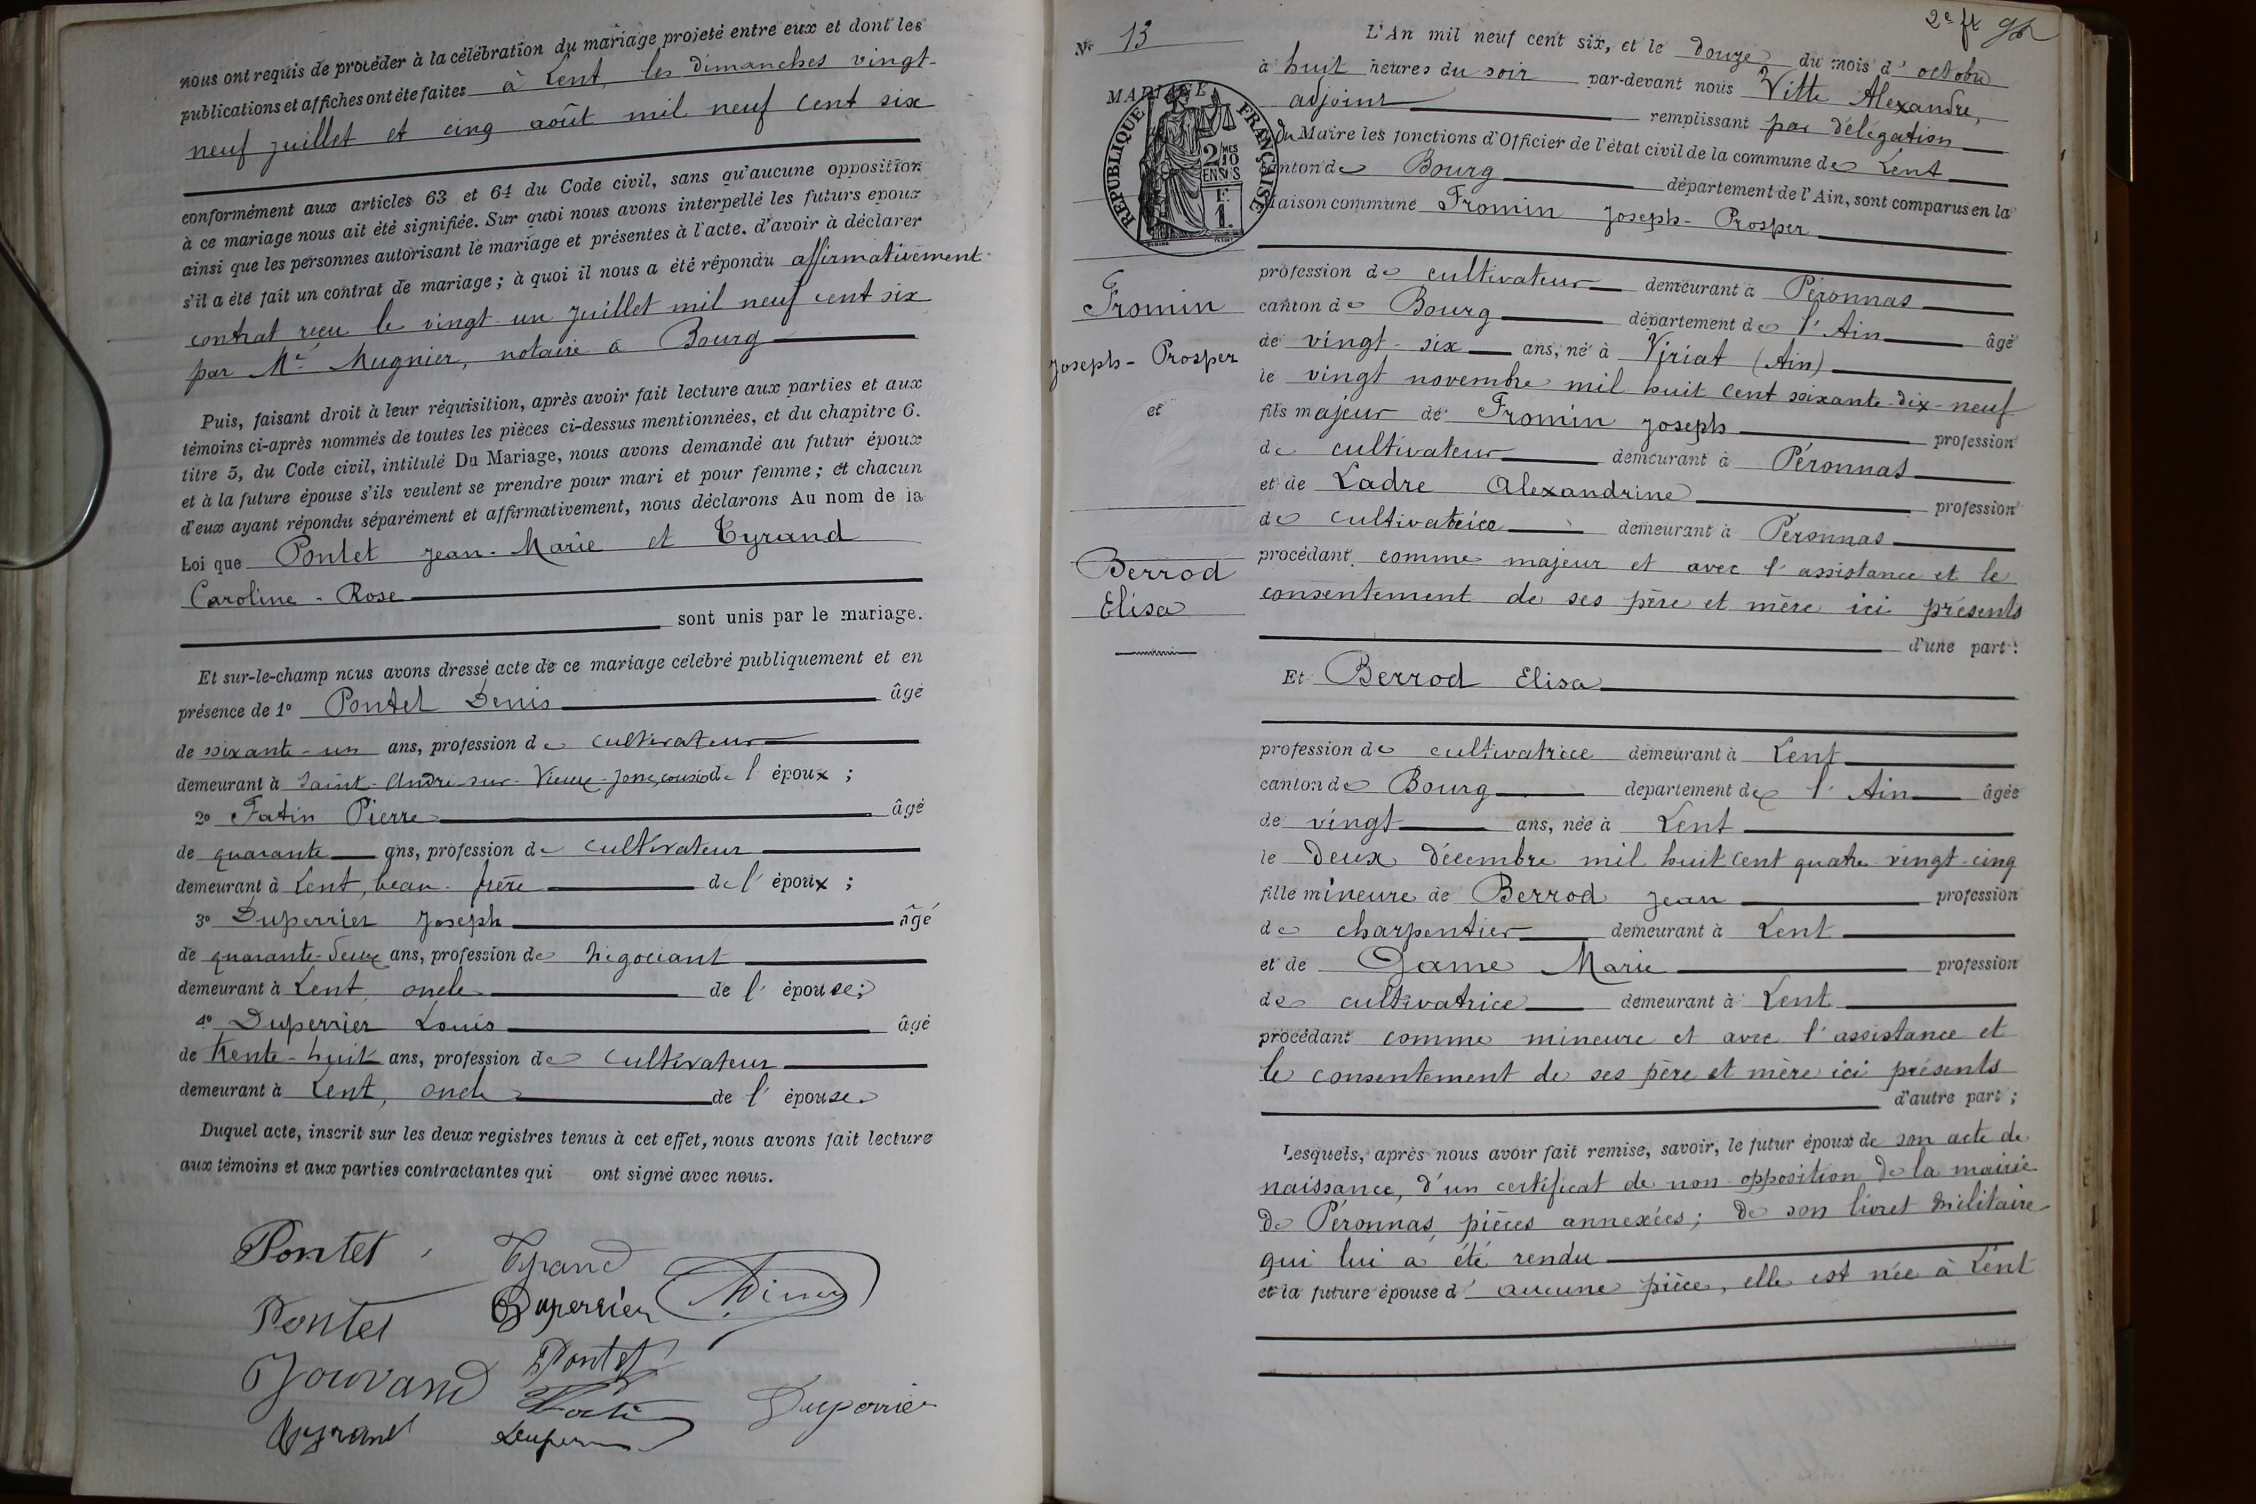 nous ont requis de procéder à la célébration du mariage projeté entre eux et dont les
publications et affiches ont été faites à Lent, les dimanches vingt-
neuf juillet et cinq août mil neuf cent six
conformément aux articles 63 et 64 du Code civil, sans qu'aucune opposition
à ce mariage nous ait été signifiée. Sur quoi nous avons interpellé les futurs époux
ainsi que les personnes autorisant le mariage et présentes à l'acte. d'avoir à déclarer
s'il a été fait un contrat de mariage ; à quoi il nous a été répondu affirmativement
contrat reçu le vingt-un juillet mil neuf cent six
par Me Mugnier, notaire à Bourg
Puis, faisant droit à leur réquisition, après avoir fait lecture aux parties et aux
témoins ci-après nommés de toutes les pièces ci-dessus mentionnées, et du chapitre 6.
titre 5, du Code civil, intitulé Du Mariage, nous avons demandé au futur époux
et à la future épouse s'ils veulent se prendre pour mari et pour femme ; et chacun
d'eux ayant répondu séparément et affirmativement, nous déclarons Au nom de la
Loi que Pontet Jean-Marie et Tyrand
Caroline-Rose
sont unis par le mariage.
Et sur-le-champ nous avons dressé acte de ce mariage célébré publiquement et en
présence de 1° Pontet Denis âgé
de soixante-un ans, profession de cultivateur
demeurant à Saint-André-sur-Vieux-Jonc, cousin de l'époux ;
2° Fatin Pierre âgé
de quarante ans, profession de cultivateur
demeurant à Lent, beau-frère de l'époux ;
3° Duperrier Joseph âgé
de quarante-deux ans, profession de négociant
demeurant à Lent, oncle de l'épouse ;
4° Duperrier Louis âgé
de trente-huit ans, profession de cultivateur
demeurant à Lent, oncle de l'épouse
Duquel acte, inscrit sur les deux registres tenus à cet effet, nous avons fait lecture
aux témoins et aux parties contractantes qui ont signé avec nous.
Pontet Tyrand
Pontet Duperrier
Jouvand Pontet
Tyrand Duperrier
N° 13
2e ft
MARIAGE
RÉPUBLIQUE FRANÇAISE
2/10 MES
EN SUS
F.
1.
Fromin
Joseph-Prosper
et
Berrod
Elisa
L'An mil neuf cent six, et le douze du mois d'octobre
à huit heures du soir par-devant nous Vitte Alexandre,
adjoint remplissant par délégation
du Maire les fonctions d'Officier de l'état civil de la commune de Lent
canton de Bourg département de l'Ain, sont comparus en la
maison commune Fromin Joseph-Prosper
profession de cultivateur demeurant à Péronnas
canton de Bourg département de l'Ain âgé
de vingt-six ans, né à Viriat (Ain)
le vingt novembre mil huit cent soixante-dix-neuf
fils majeur de Fromin Joseph profession
de cultivateur demeurant à Péronnas
et de Ladre Alexandrine profession
de cultivatrice demeurant à Péronnas
procédant comme majeur et avec l'assistance et le
consentement de ses père et mère ici présents
d'une part :
Et Berrod Elisa
profession de cultivatrice demeurant à Lent
canton de Bourg département de l'Ain âgée
de vingt ans, née à Lent
le deux décembre mil huit cent quatre-vingt-cinq
fille mineure de Berrod Jean profession
de charpentier demeurant à Lent
et de Game Marie profession
de cultivatrice demeurant à Lent
procédant comme mineure et avec l'assistance et
le consentement de ses père et mère ici présents
d'autre part ;
Lesquels, après nous avoir fait remise, savoir, le futur époux de son acte de
naissance, d'un certificat de non-opposition de la mairie
de Péronnas, pièces annexées ; de son livret militaire
qui lui a été rendu
et la future épouse d'aucune pièce, elle est née à Lent